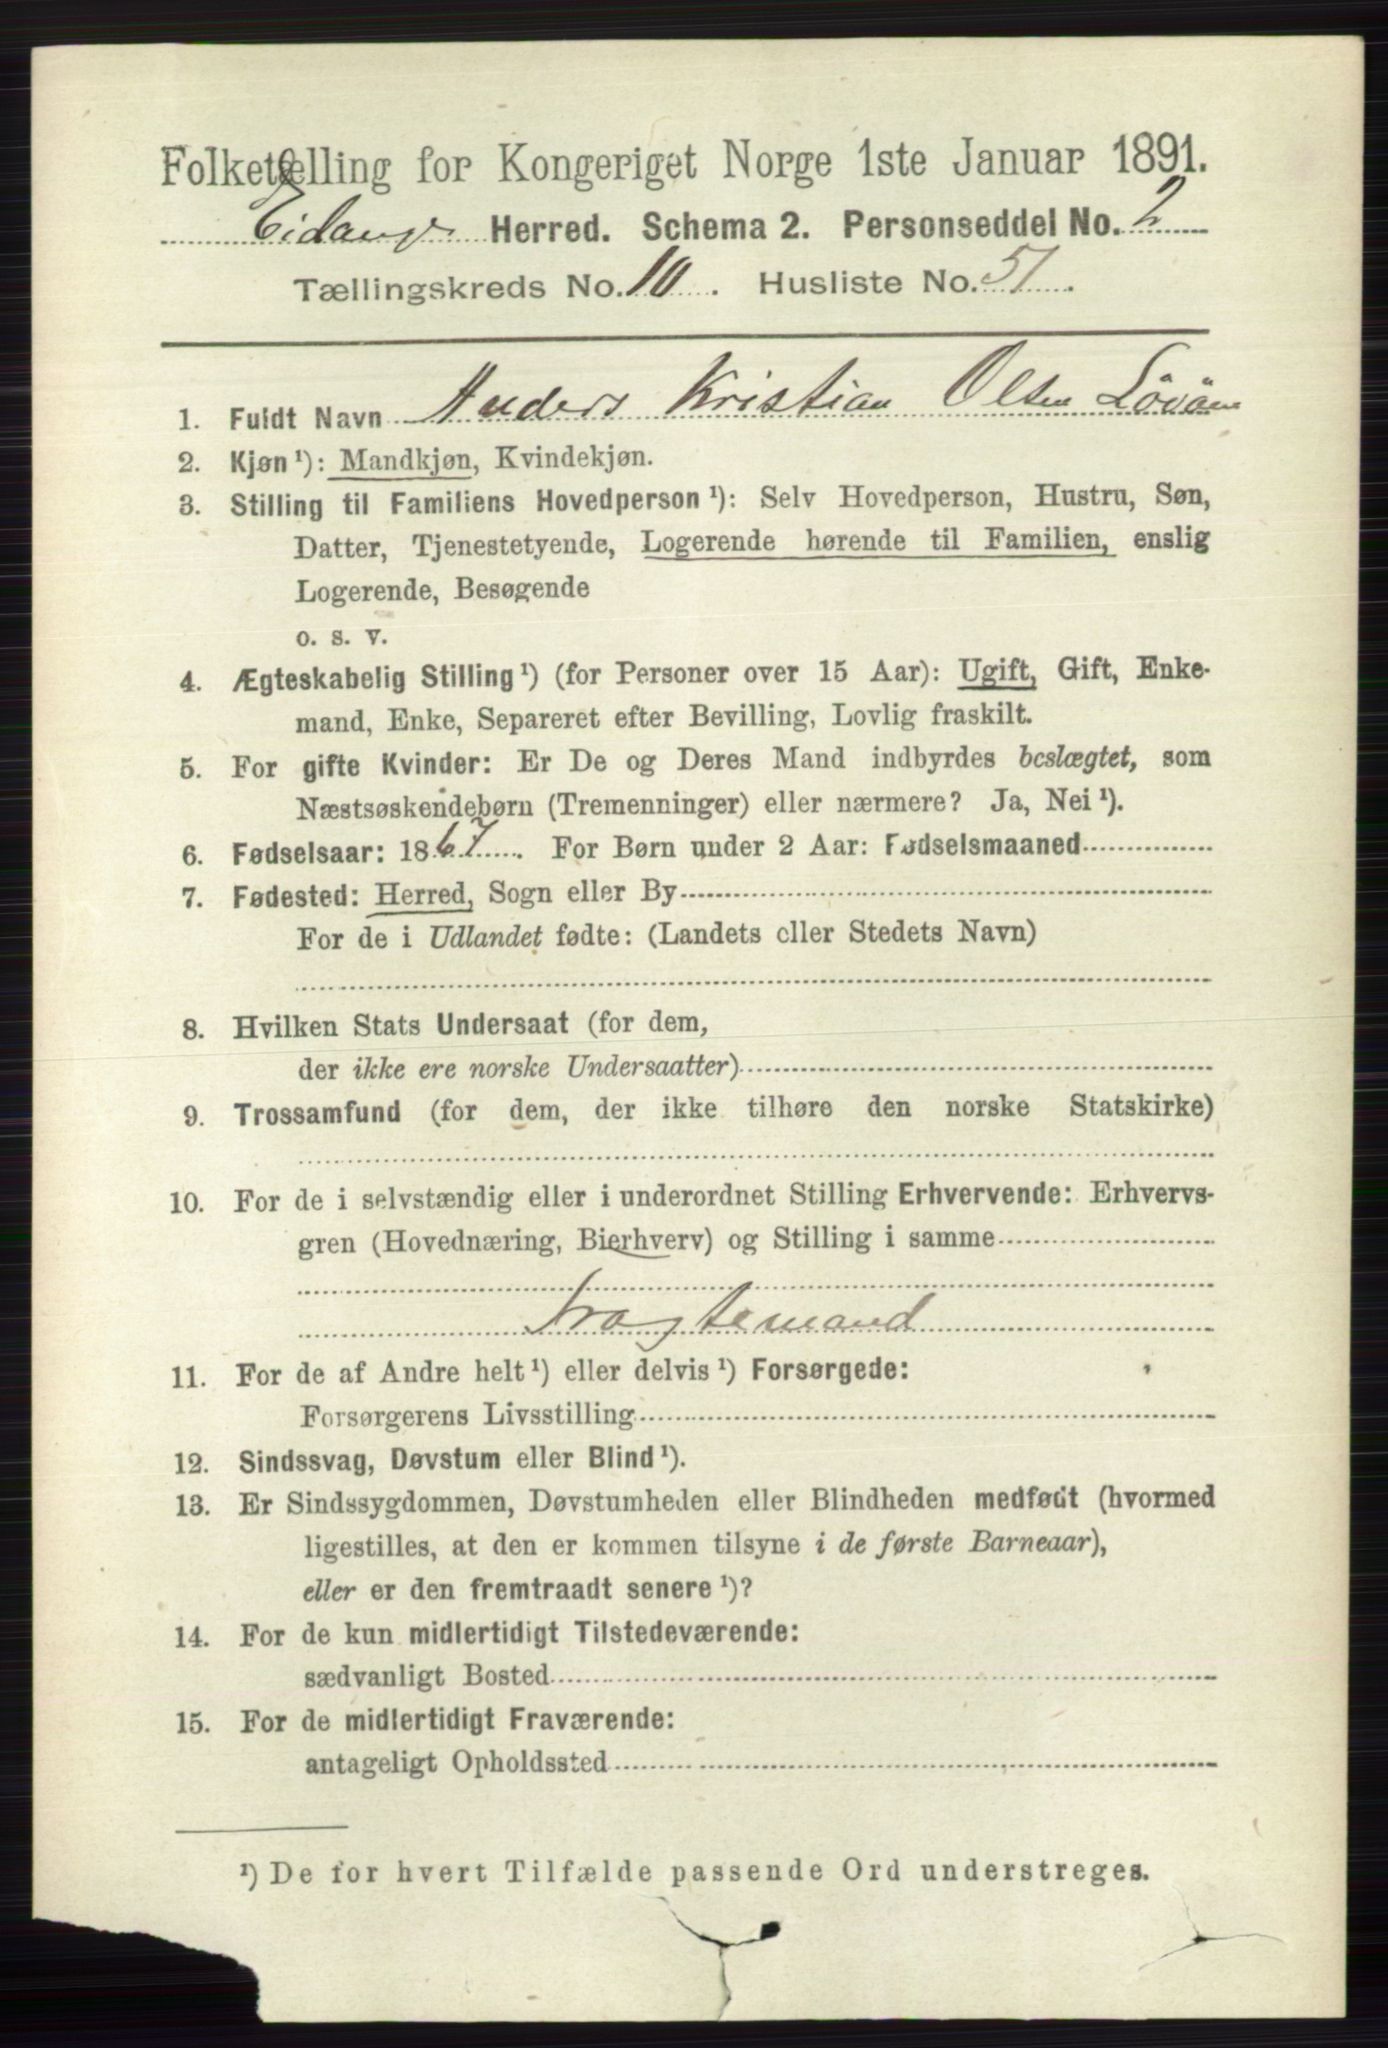 Folketælling for Kongeriget Norge 1ste Januar 1891.
Eidanger Herred. Schema 2. Personseddel No. 2
Tællingskreds No. 10. Husliste No. 51.
1. Fuldt Navn Anders Kristian Olsen
2. Kjøn ¹): Mandkjøn, Kvindekjøn.
3. Stilling til Familiens Hovedperson ¹): Selv Hovedperson, Hustru, Søn,
Datter, Tjenestetyende, Logerende hørende til Familien, enslig
Logerende, Besøgende
o. s. v.
4. Ægteskabelig Stilling ¹) (for Personer over 15 Aar): Ugift, Gift, Enke-
mand, Enke, Separeret efter Bevilling, Lovlig fraskilt.
5. For gifte Kvinder: Er De og Deres Mand indbyrdes beslægtet, som
Næstsøskendebørn (Tremenninger) eller nærmere? Ja, Nei ¹).
6. Fødselsaar: 1867. For Børn under 2 Aar: Fødselsmaaned
7. Fødested: Herred, Sogn eller By
For de i Udlandet fødte: (Landets eller Stedets Navn)
8. Hvilken Stats Undersaat (for dem,
der ikke ere norske Undersaatter)
9. Trossamfund (for dem, der ikke tilhøre den norske Statskirke)
10. For de i selvstændig eller i underordnet Stilling Erhvervende: Erhvervs-
gren (Hovednæring, Bierhverv) og Stilling i samme
Fragtemand
11. For de af Andre helt ¹) eller delvis ¹) Forsørgede:
Forsørgerens Livsstilling
12. Sindssvag, Døvstum eller Blind ¹).
13. Er Sindssygdommen, Døvstumheden eller Blindheden medfødt (hvormed
ligestilles, at den er kommen tilsyne i de første Barneaar),
eller er den fremtraadt senere ¹)?
14. For de kun midlertidigt Tilstedeværende:
sædvanligt Bosted
15. For de midlertidigt Fraværende:
antageligt Opholdssted
¹) De for hvert Tilfælde passende Ord understreges.